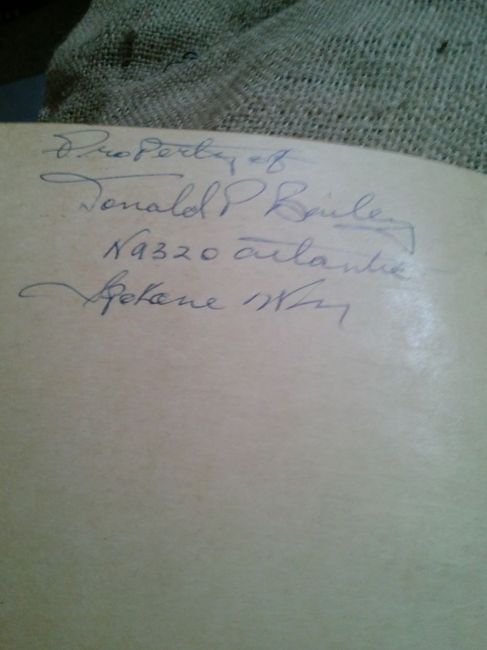 Property of
Donald P Bailey
N9320 Atlantic
Spokane Wn